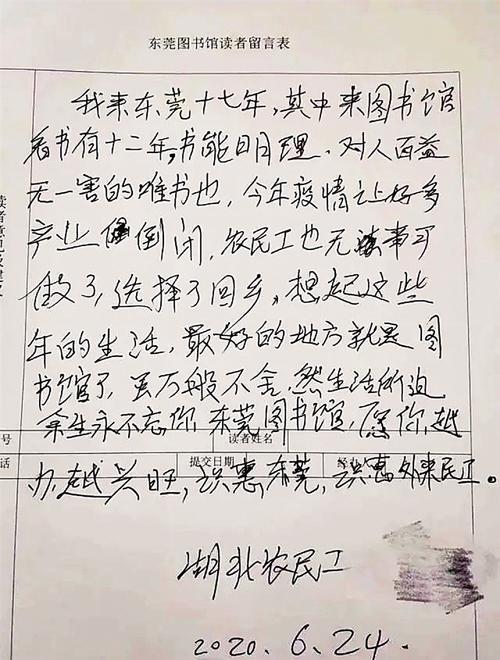 东莞图书馆读者留言表
我来东莞十七年，其中来图书馆
看书有十二年，书能明理，对人百益
无一害的唯书也，今年疫情让好多
产业倒闭，农民工也无事可
做了，选择了回乡，想起这些
年的生活，最好的地方就是图
书馆了，虽万般不舍，然生活所迫
余生永不忘你，东莞图书馆，愿你越
号
读者姓名
办越兴旺，识惠东莞，识惠外来民工。
话
提交日期
经办人
湖北农民工
2020.6.24.